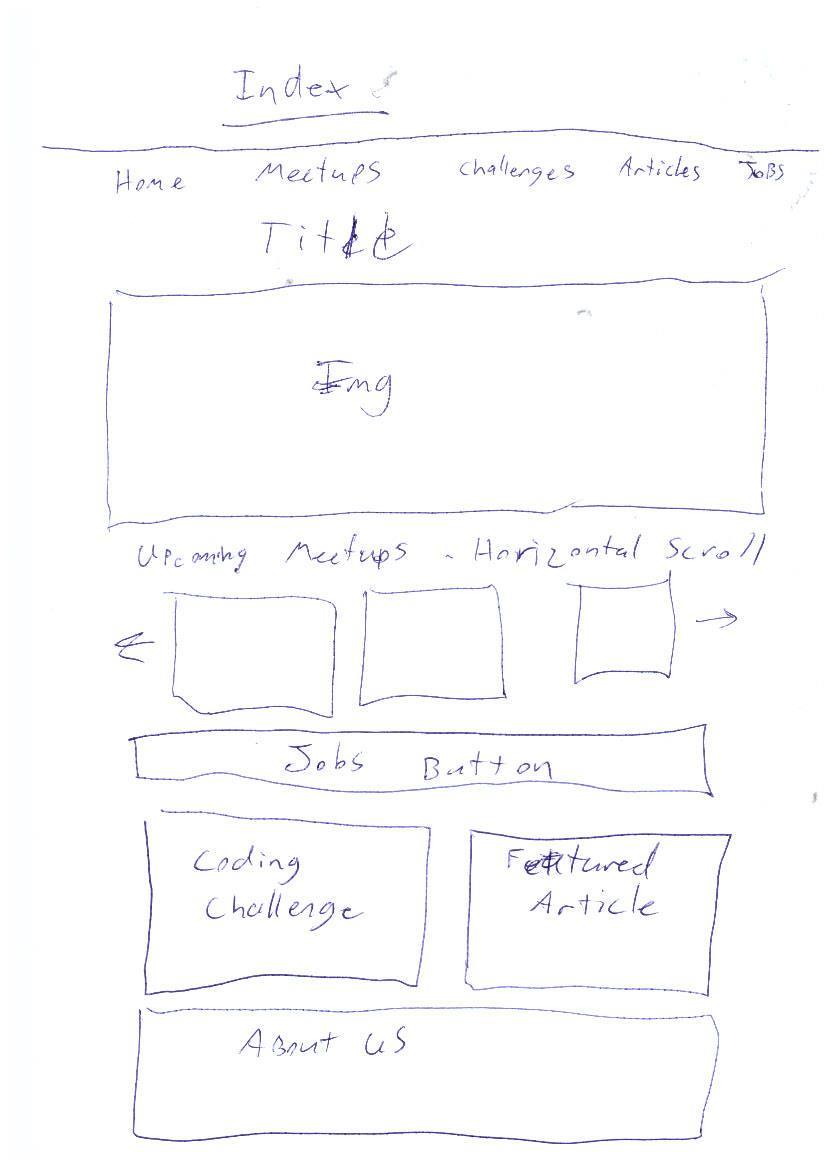 Index
Home Meetups Challenges Articles JOBS
Title
Img
Upcoming Meetups - Horizontal Scroll
Jobs Button
Coding
Challenge
Featured
Article
About us